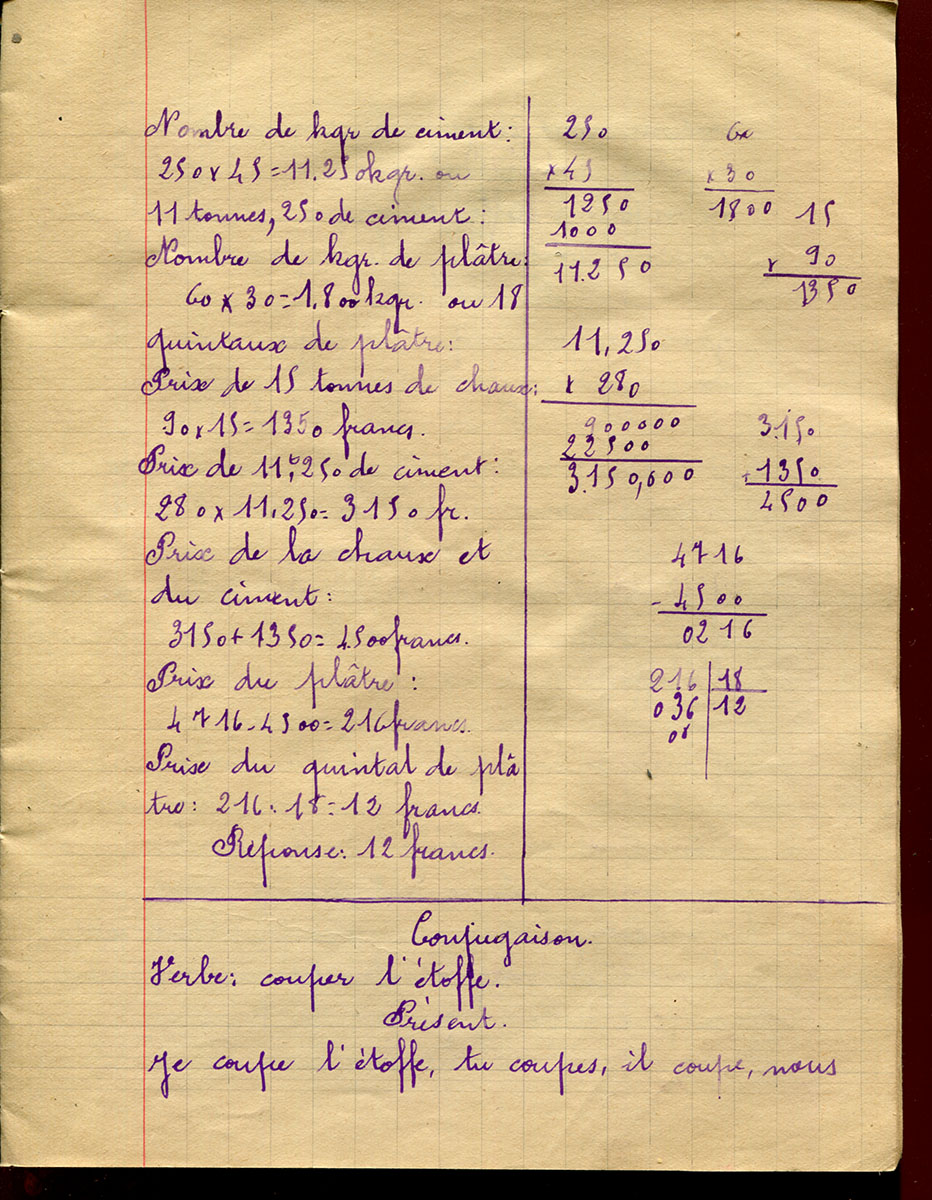 Nombre de kgr de ciment:
250 x 45 = 11.250kgr. ou
11 tonnes, 250 de ciment:
Nombre de kgr. de plâtre:
60 x 30 = 1.800 kgr. ou 18
quintaux de plâtre:
Prix de 15 tonnes de chaux:
90 x 15 = 1350 francs.
Prix de 11,t250 de ciment:
280 x 11,250 = 3150 fr.
Prix de la chaux et
du ciment:
3150 + 1350 = 4500 francs.
Prix du plâtre :
4716 - 4500 = 216 francs.
Prix du quintal de plâ
tre: 216 : 18 = 12 francs.
Réponse: 12 francs.
250
x 45
1250
1000
11.250
60
x 30
1800
15
x 90
1350
11,250
x 280
900000
22500
3.150,000
3.150
+ 1350
4500
4716
- 4500
0216
216 | 18
036 | 12
00
Conjugaison.
Verbe: couper l'étoffe.
Présent.
Je coupe l'étoffe, tu coupes, il coupe, nous